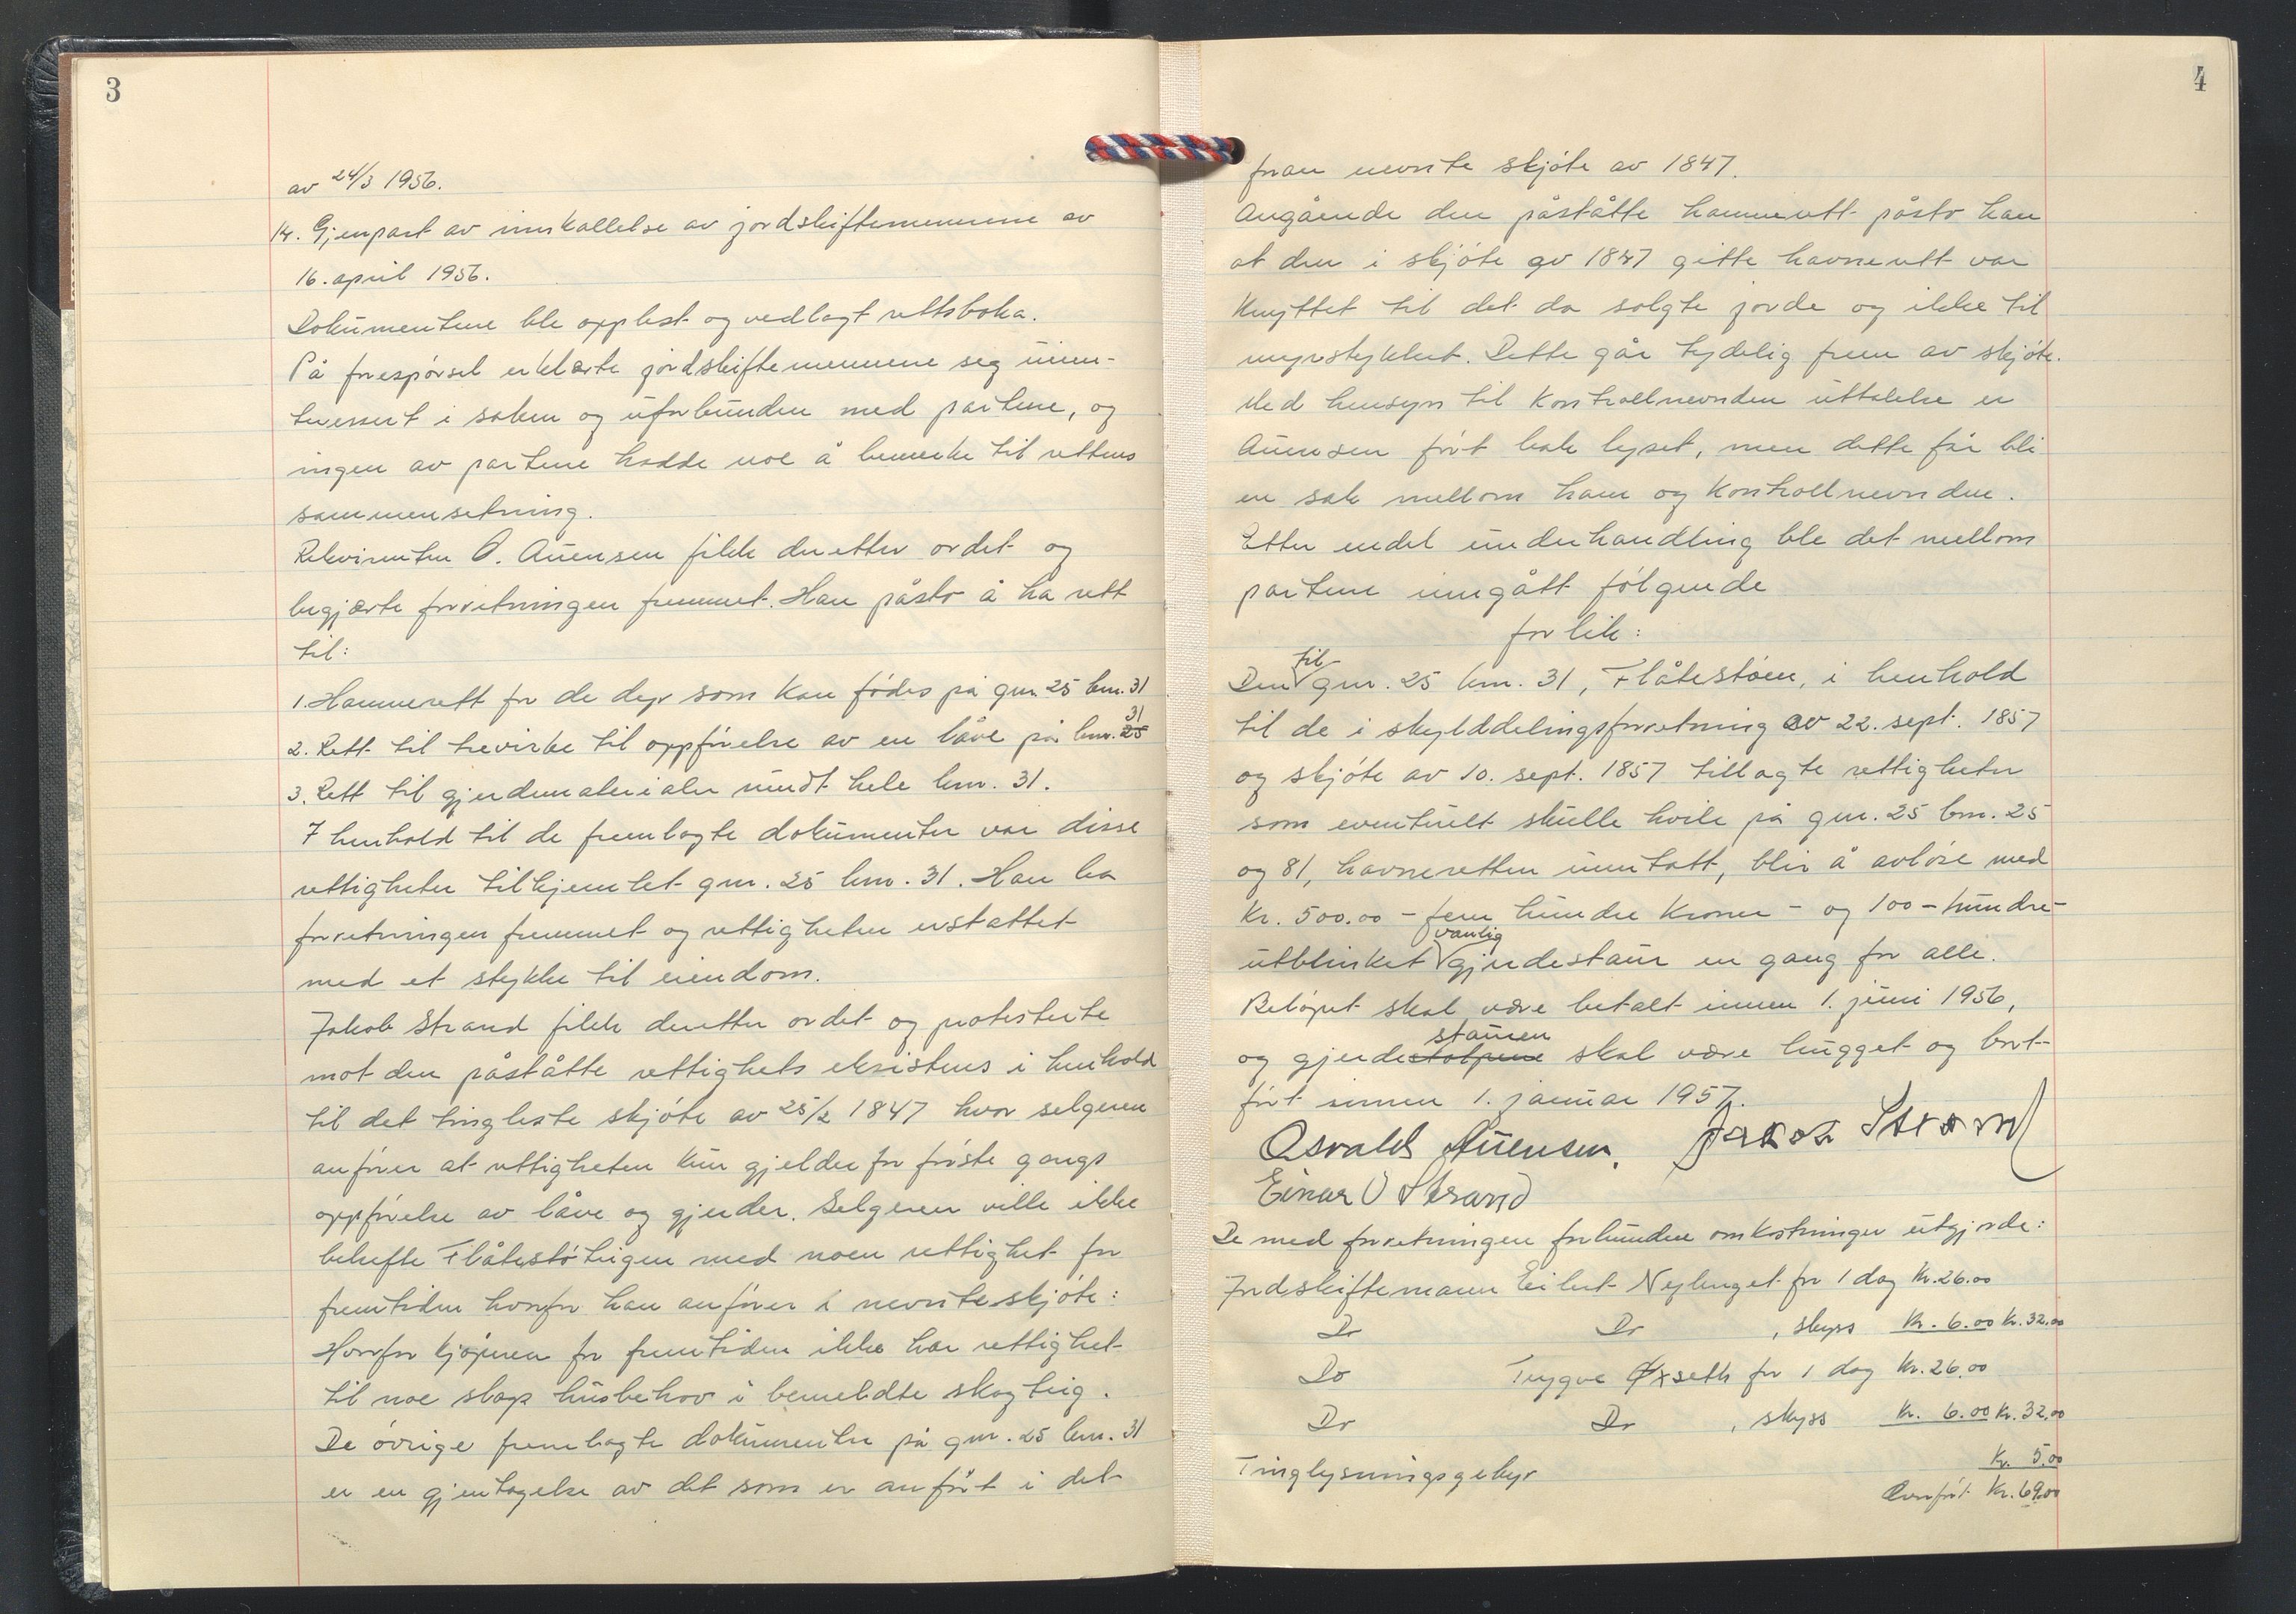 3
av 24/3 1956.
14. Gjenpart av innkallelse av jordskiftemennene av
16. april 1956.
Dokumentene ble opplest og vedlagt rettsboka.
På forespørsel erklærte jordskiftemennene seg uinn-
teressert i saken og uforbunden med partene, og
ingen av partene hadde noe å bemerke til rettens
sammensetning.
Rekvirenten O. Auensen fikk deretter ordet og
begjærte forretningen fremmet. Han påsto å ha rett
til:
1. Havnerett for de dyr som kan fødes på gnr. 25 bnr. 31
2. Rett til trevirke til oppførelse av en låve på bnr. 25 31
3. Rett til gjerdematerialer rundt hele bnr. 31.
I henhold til de fremlagte dokumenter var disse
rettigheter tilkjentet gnr. 25 bnr. 31. Han ba
forretningen fremmet og rettigheten erstattet
med et stykke til eiendom.
Jakob Strand fikk deretter ordet og protesterte
mot den påståtte rettighets eksistens i henhold
til det tingleste skjøte av 25/2 1847 hvor selgeren
anfører at rettigheten kun gjelder for første gangs
oppførelse av låve og gjerder. Selgeren ville ikke
behefte Flåtestøteigen med noen rettighet for
fremtiden hvorfor han anfører i nevnte skjøte:
Hvorfor kjøperen for fremtiden ikke har rettighet
til noe slags husbehov i bemeldte skogteig.
De øvrige fremlagte dokumenter på gnr. 25 bnr. 31
er en gjentagelse av det som er anført i det
4
foran nevnte skjøte av 1847.
Angående den påståtte havnerett påsto han
at den i skjøte av 1847 gitte havnerett var
knyttet til det da solgte jorde og ikke til
myrstykket. Dette går tydelig frem av skjøte.
Med hensyn til kontrollnevnden uttalelse er
Auensen ført bak lyset, men dette får bli
en sak mellom ham og kontrollnevnden.
Etter endel underhandling ble det mellom
partene inngått følgende
forlik:
Den til gnr. 25 bnr. 31, Flåtestøen, i henhold
til de i skylddelingsforretning av 22. sept. 1857
og skjøte av 10. sept. 1857 tillagte rettigheter
som eventuelt skulle hvile på gnr. 25 bnr. 25
og 81, havneretten unntatt, blir å avløse med
Kr. 500.00 - fem hundre kroner - og 100 - hundre -
utblinket vanlig gjerdestaur en gang for alle.
Beløpet skal være betalt innen 1. juni 1956,
og gjerdestolpene stauren skal være hugget og bort-
ført innen 1. januar 1957.
Osvald Auensen. Jakob Strand
Einar O Strand
De med forretningen forbundne omkostninger utgjorde:
Jordskiftemann Eilert Nylenget for 1 dag Kr. 26.00
Do Do , skyss Kr. 6.00 Kr. 32.00
Do Trygve Øxseth for 1 dag Kr. 26.00
Do Do , skyss Kr. 6.00 Kr. 32.00
Tinglysningsgebyr Kr. 5.00
Overført Kr. 69.00